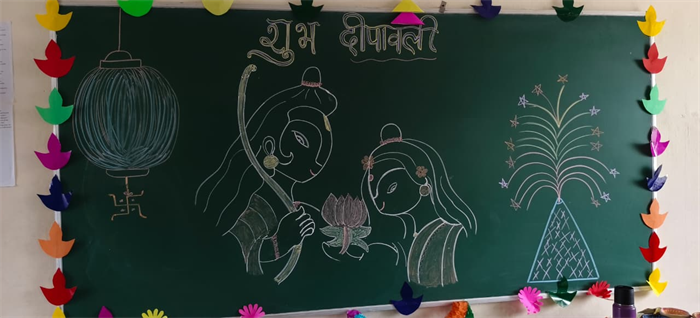 शुभ दीपावली